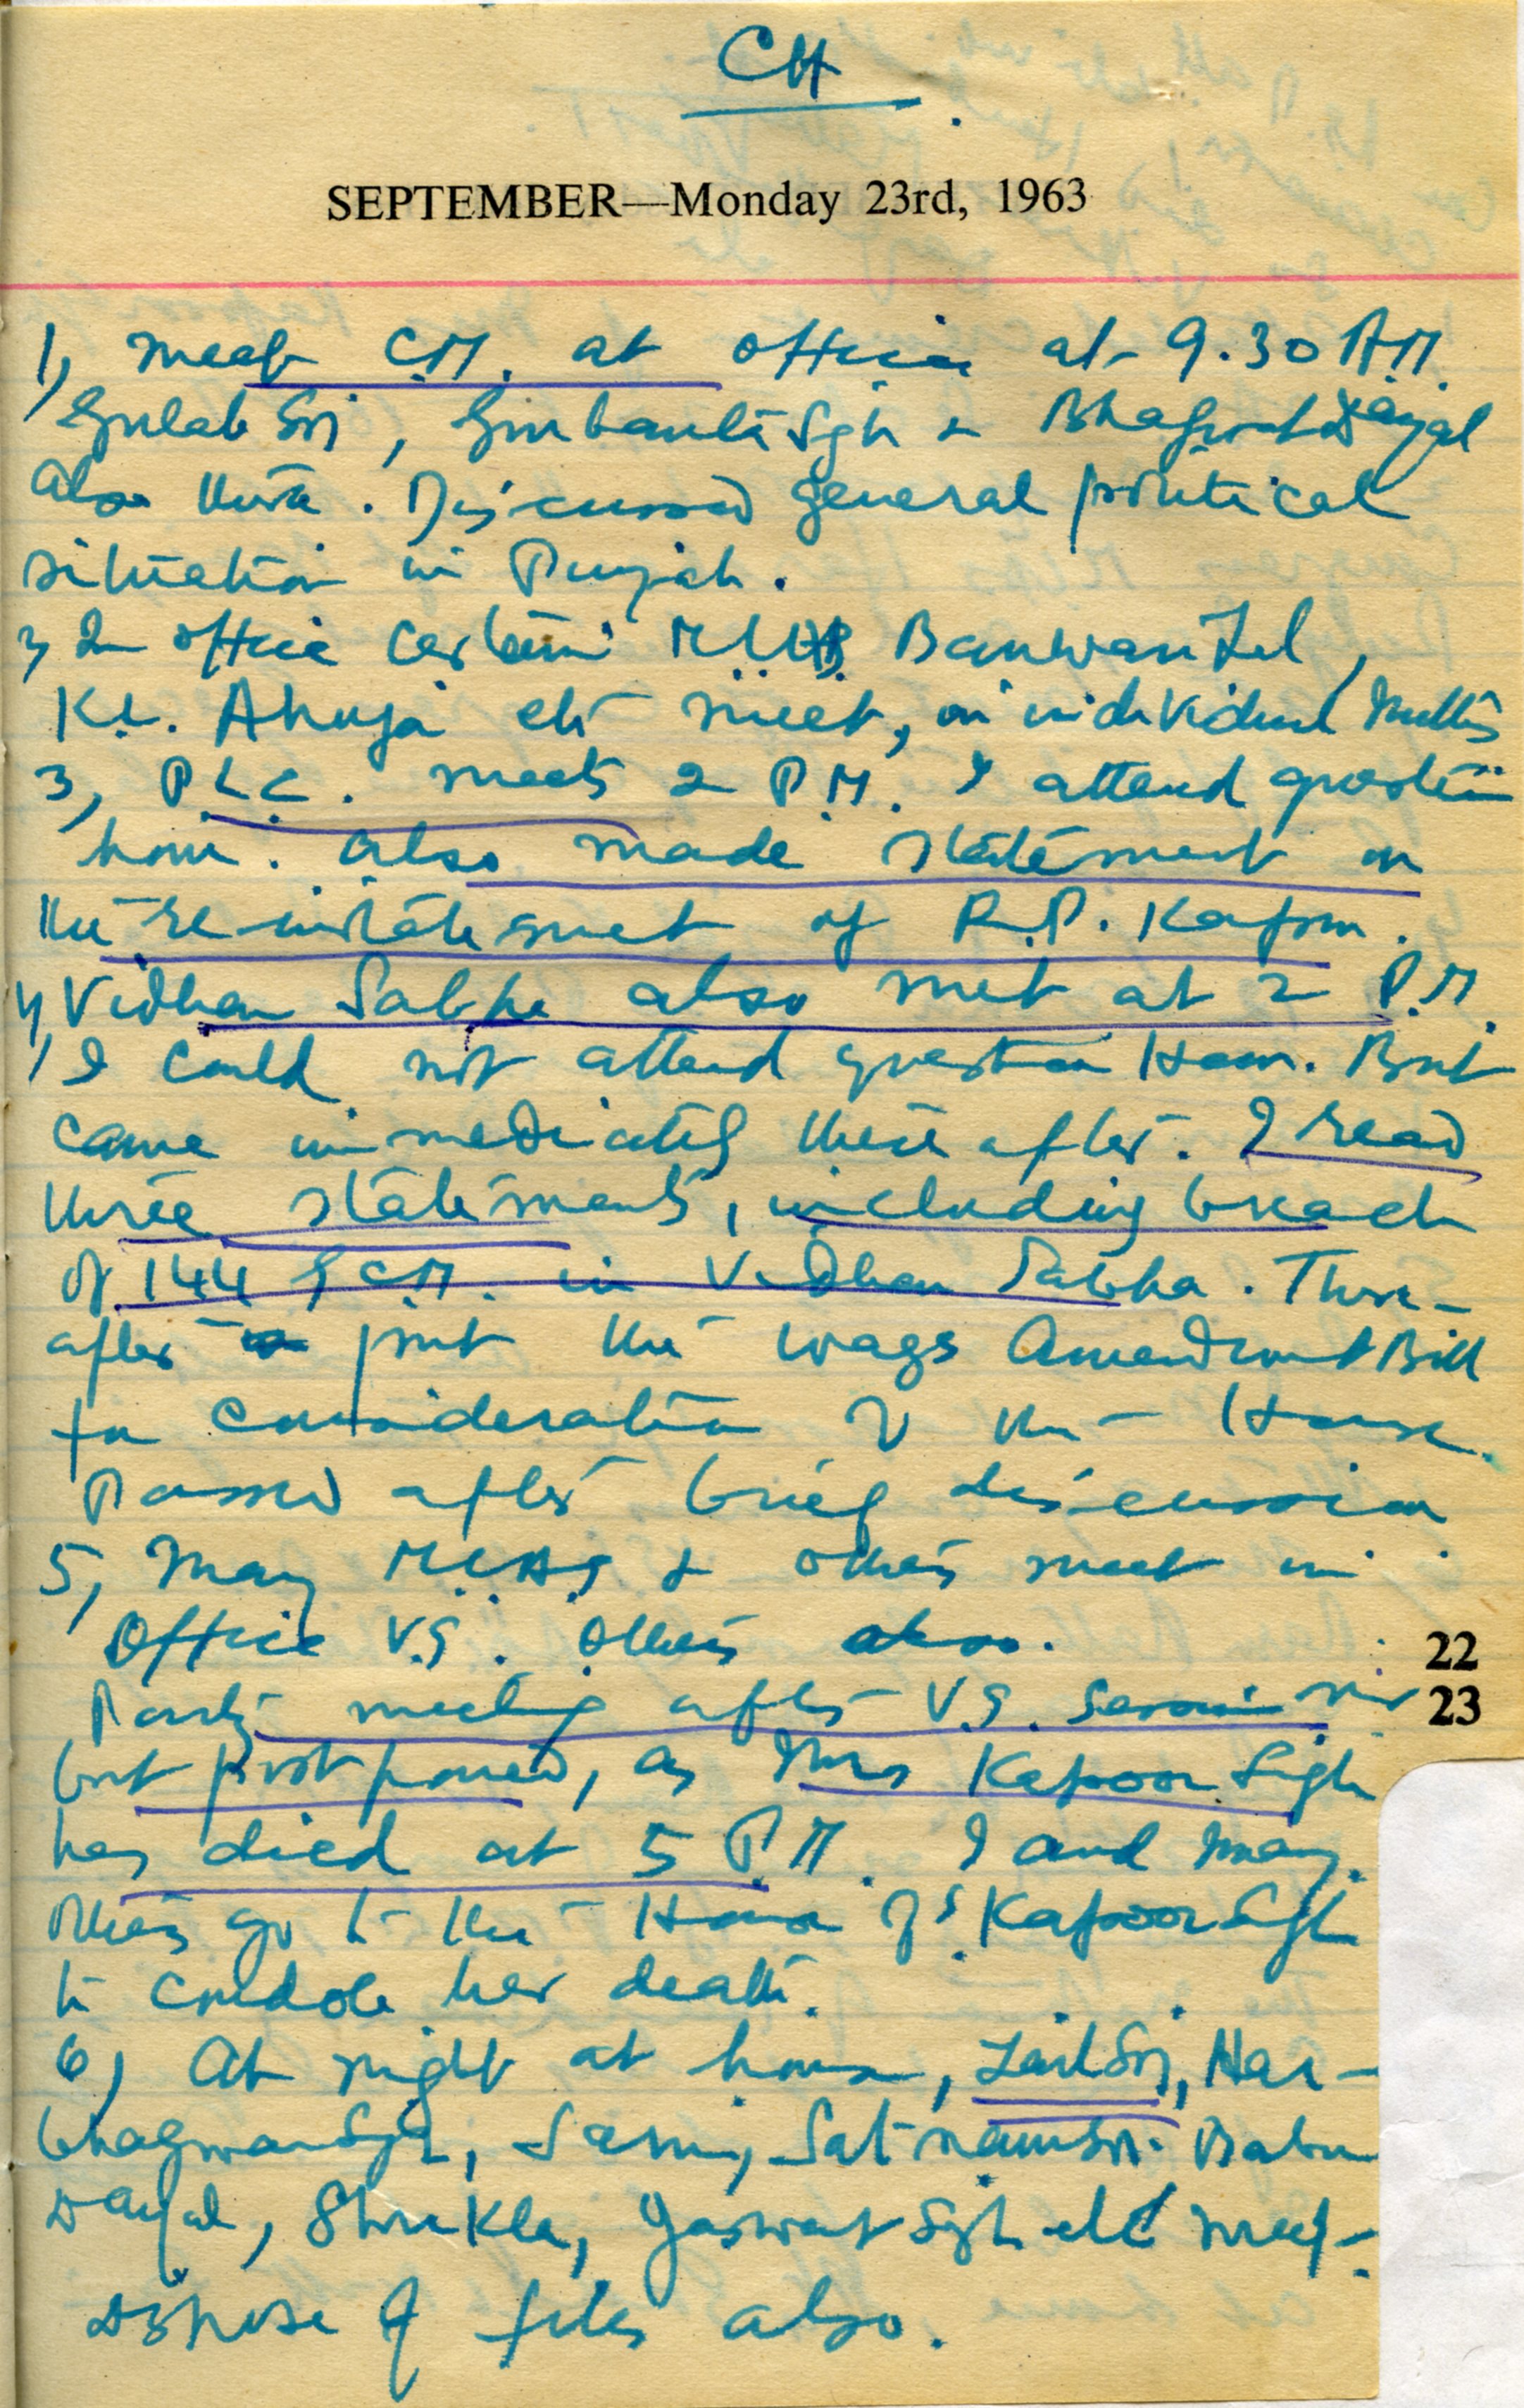 CH
SEPTEMBER—Monday 23rd, 1963
1, meet C.M. at office at 9.30 A.M.
Gulab Sin, Gurbanta Sgh & Bhagwat Dayal
also there. Discussed general political
situation in Punjab.
2, In office certain M.L.As Banwari Lal,
K.L. Ahuja etc meet, on individual matters
3, P.L.C. meets 2 P.M. I attend question
hour. Also made statement on
the re-instatement of R.P. Kapoor.
4, Vidhan Sabha also met at 2 P.M.
I could not attend question Hour. But
came immediately there after. I read
three statements, including breach
of 144 by C.M. in Vidhan Sabha. There-
after put the wages Amendment Bill
for consideration of the House.
Passed after brief discussion
5, Many M.L.As & others meet in
Office V.S. Others also.
22
Party meeting after V.S. Session
23
but postponed, as Mrs Kapoor Singh
has died at 5 P.M. I and many
others go to the House of S. Kapoor Sgh
to condole her death.
6, At night at house, Zail Sin, Har-
bhagwan Sgh, Satnam Sin. Babu
Dayal, Shukla, Jaswant Sgh etc meet.
Dispose of files also.